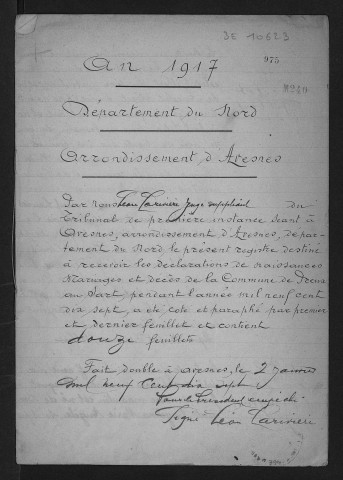 3E 10623
975
An 1917
Département du Nord
Arrondissement d'Avesnes
Par nous Léon Carinieri Juge suppléant du
Tribunal de première instance séant à
Avesnes, arrondissement d'Avesnes, dépar-
tement du Nord le présent registre destiné
à recevoir les déclarations de naissances
Mariages et décès de la Commune de Preux
au Sart pendant l'année mil neuf cent
dix sept, a été coté et paraphé par premier
et dernier feuillet et contient
douze feuillets
Fait double à Avesnes, le 2 Janvier
mil neuf Cent dix sept
Pour le Président empêché
Signé Léon